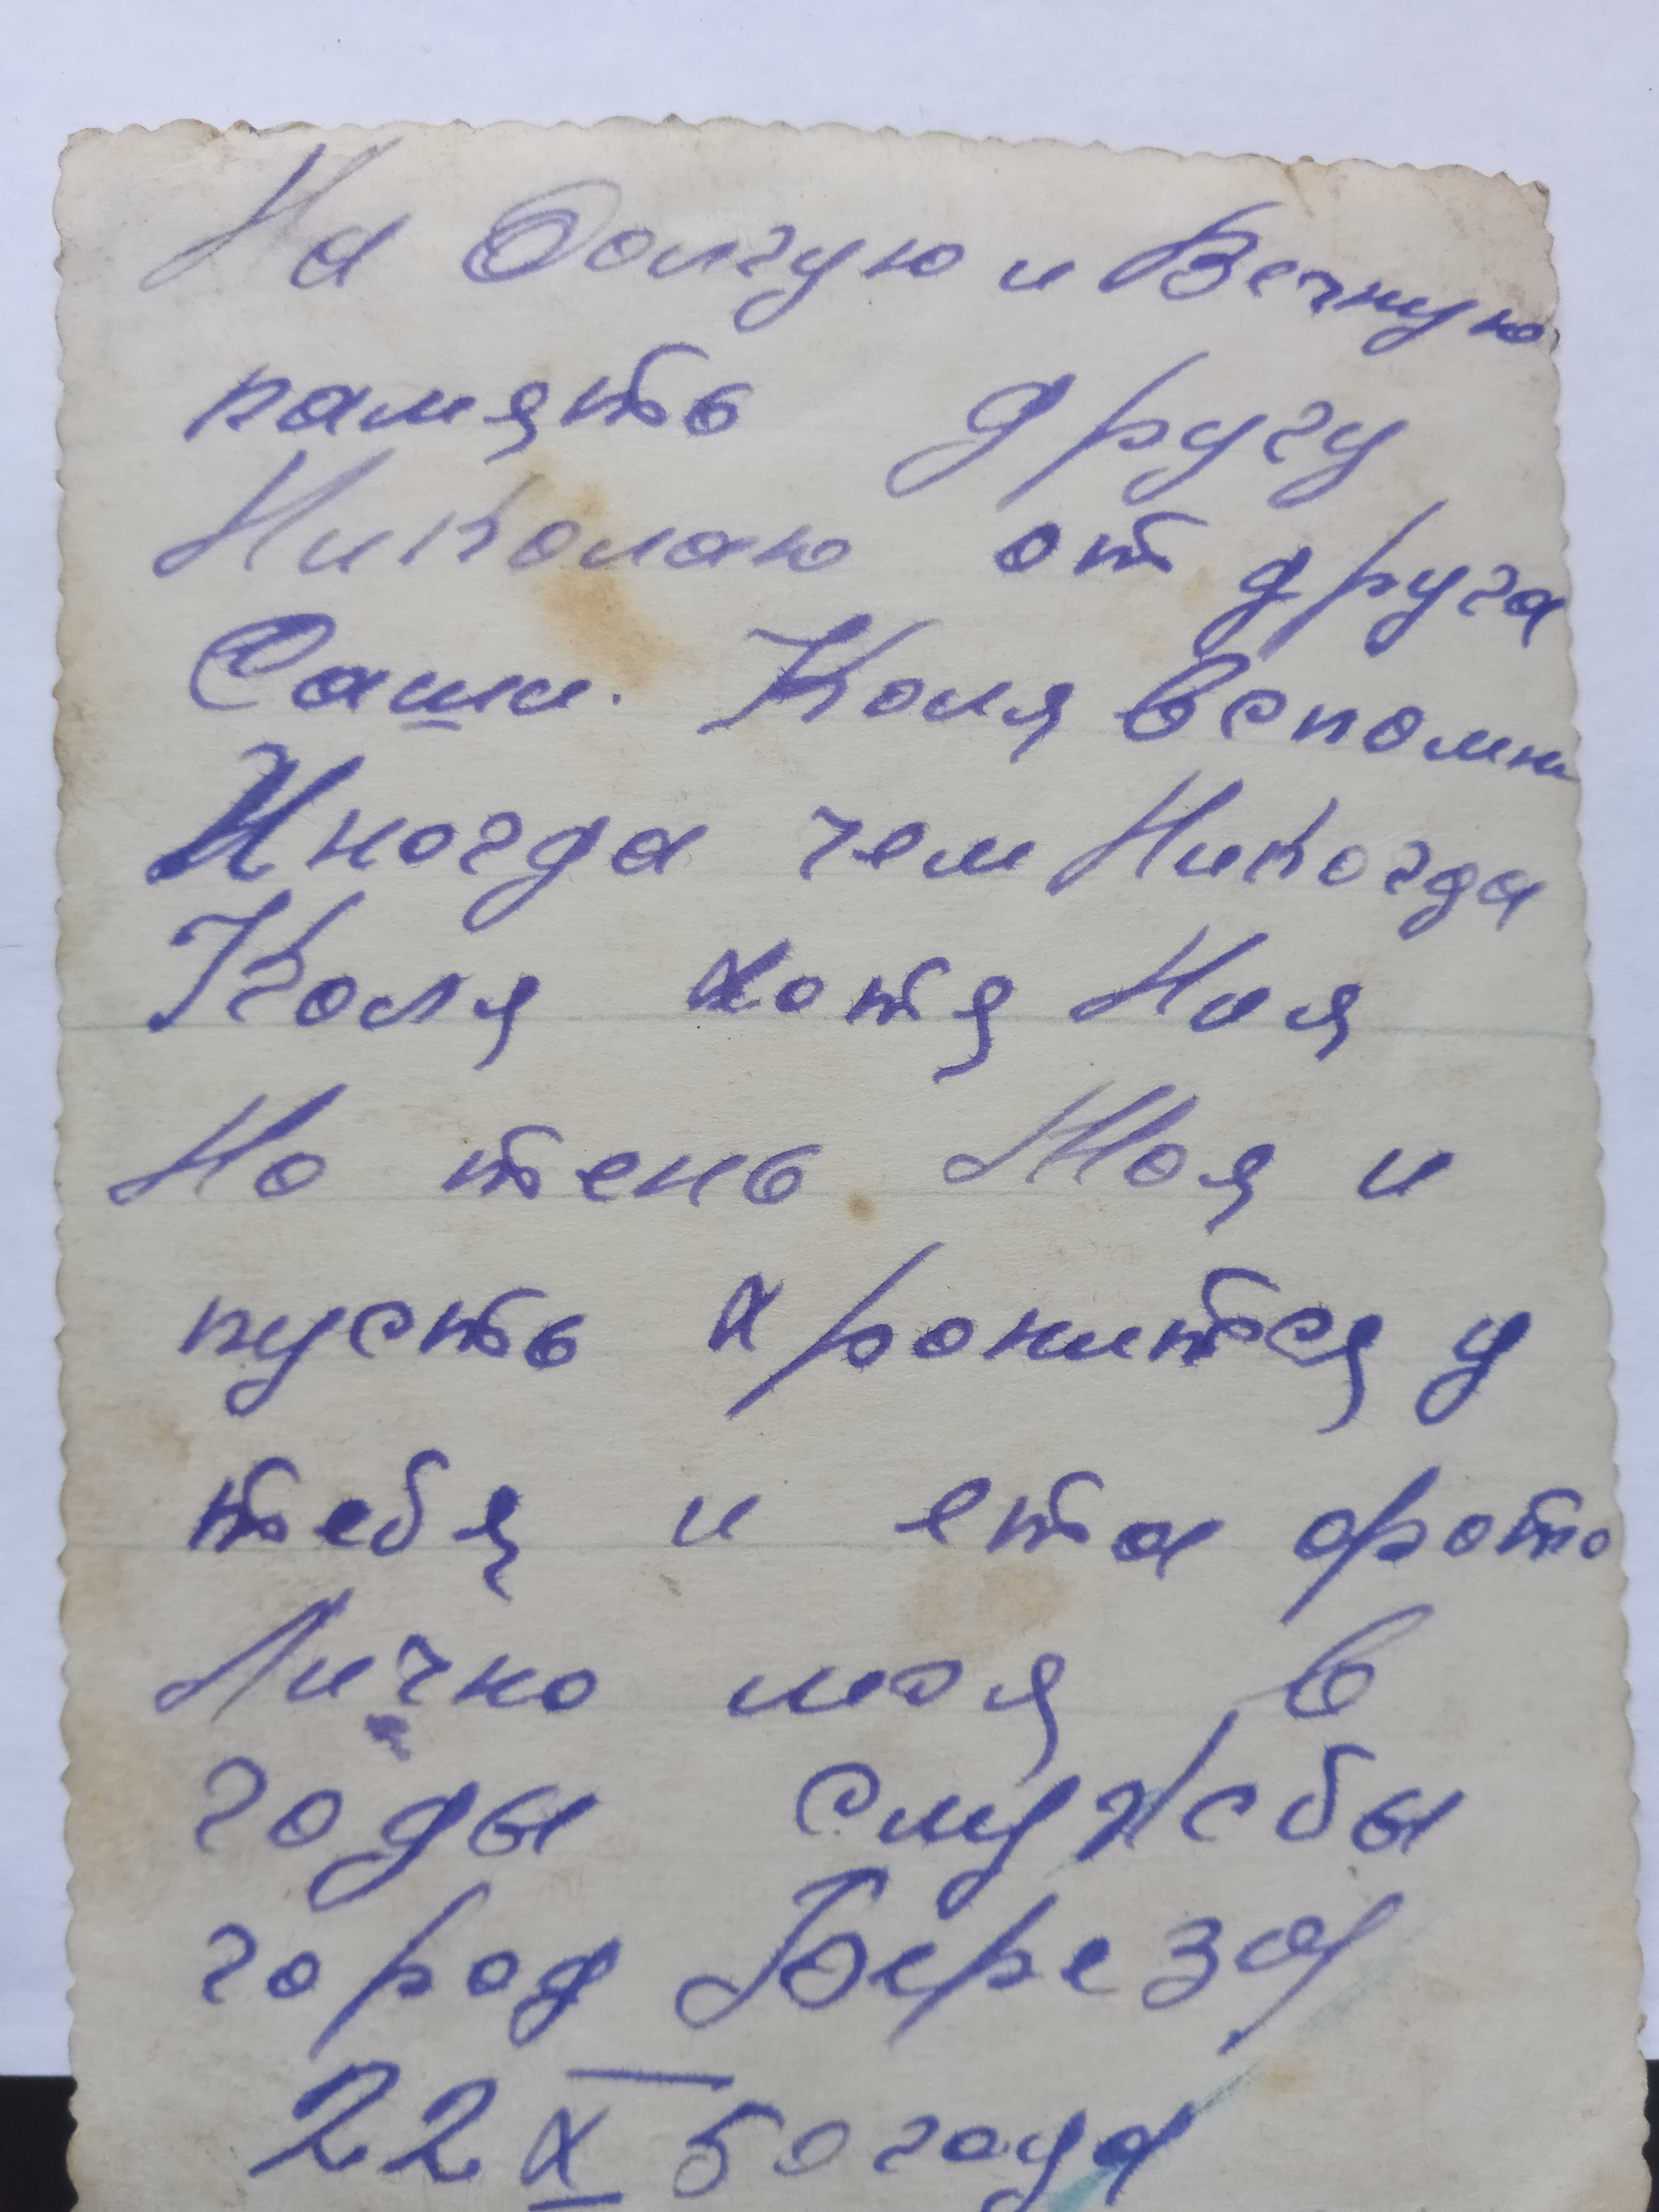 На Долгую и Вечную
память другу
Николаю от друга
Саши. Коля вспомни
Иногда чем Никогда
Коля хотя Ноя
Но тень Моя и
пусть хронится у
тебя и ета фото
Лично моя в
годы службы
город Береза
22 X 50 года